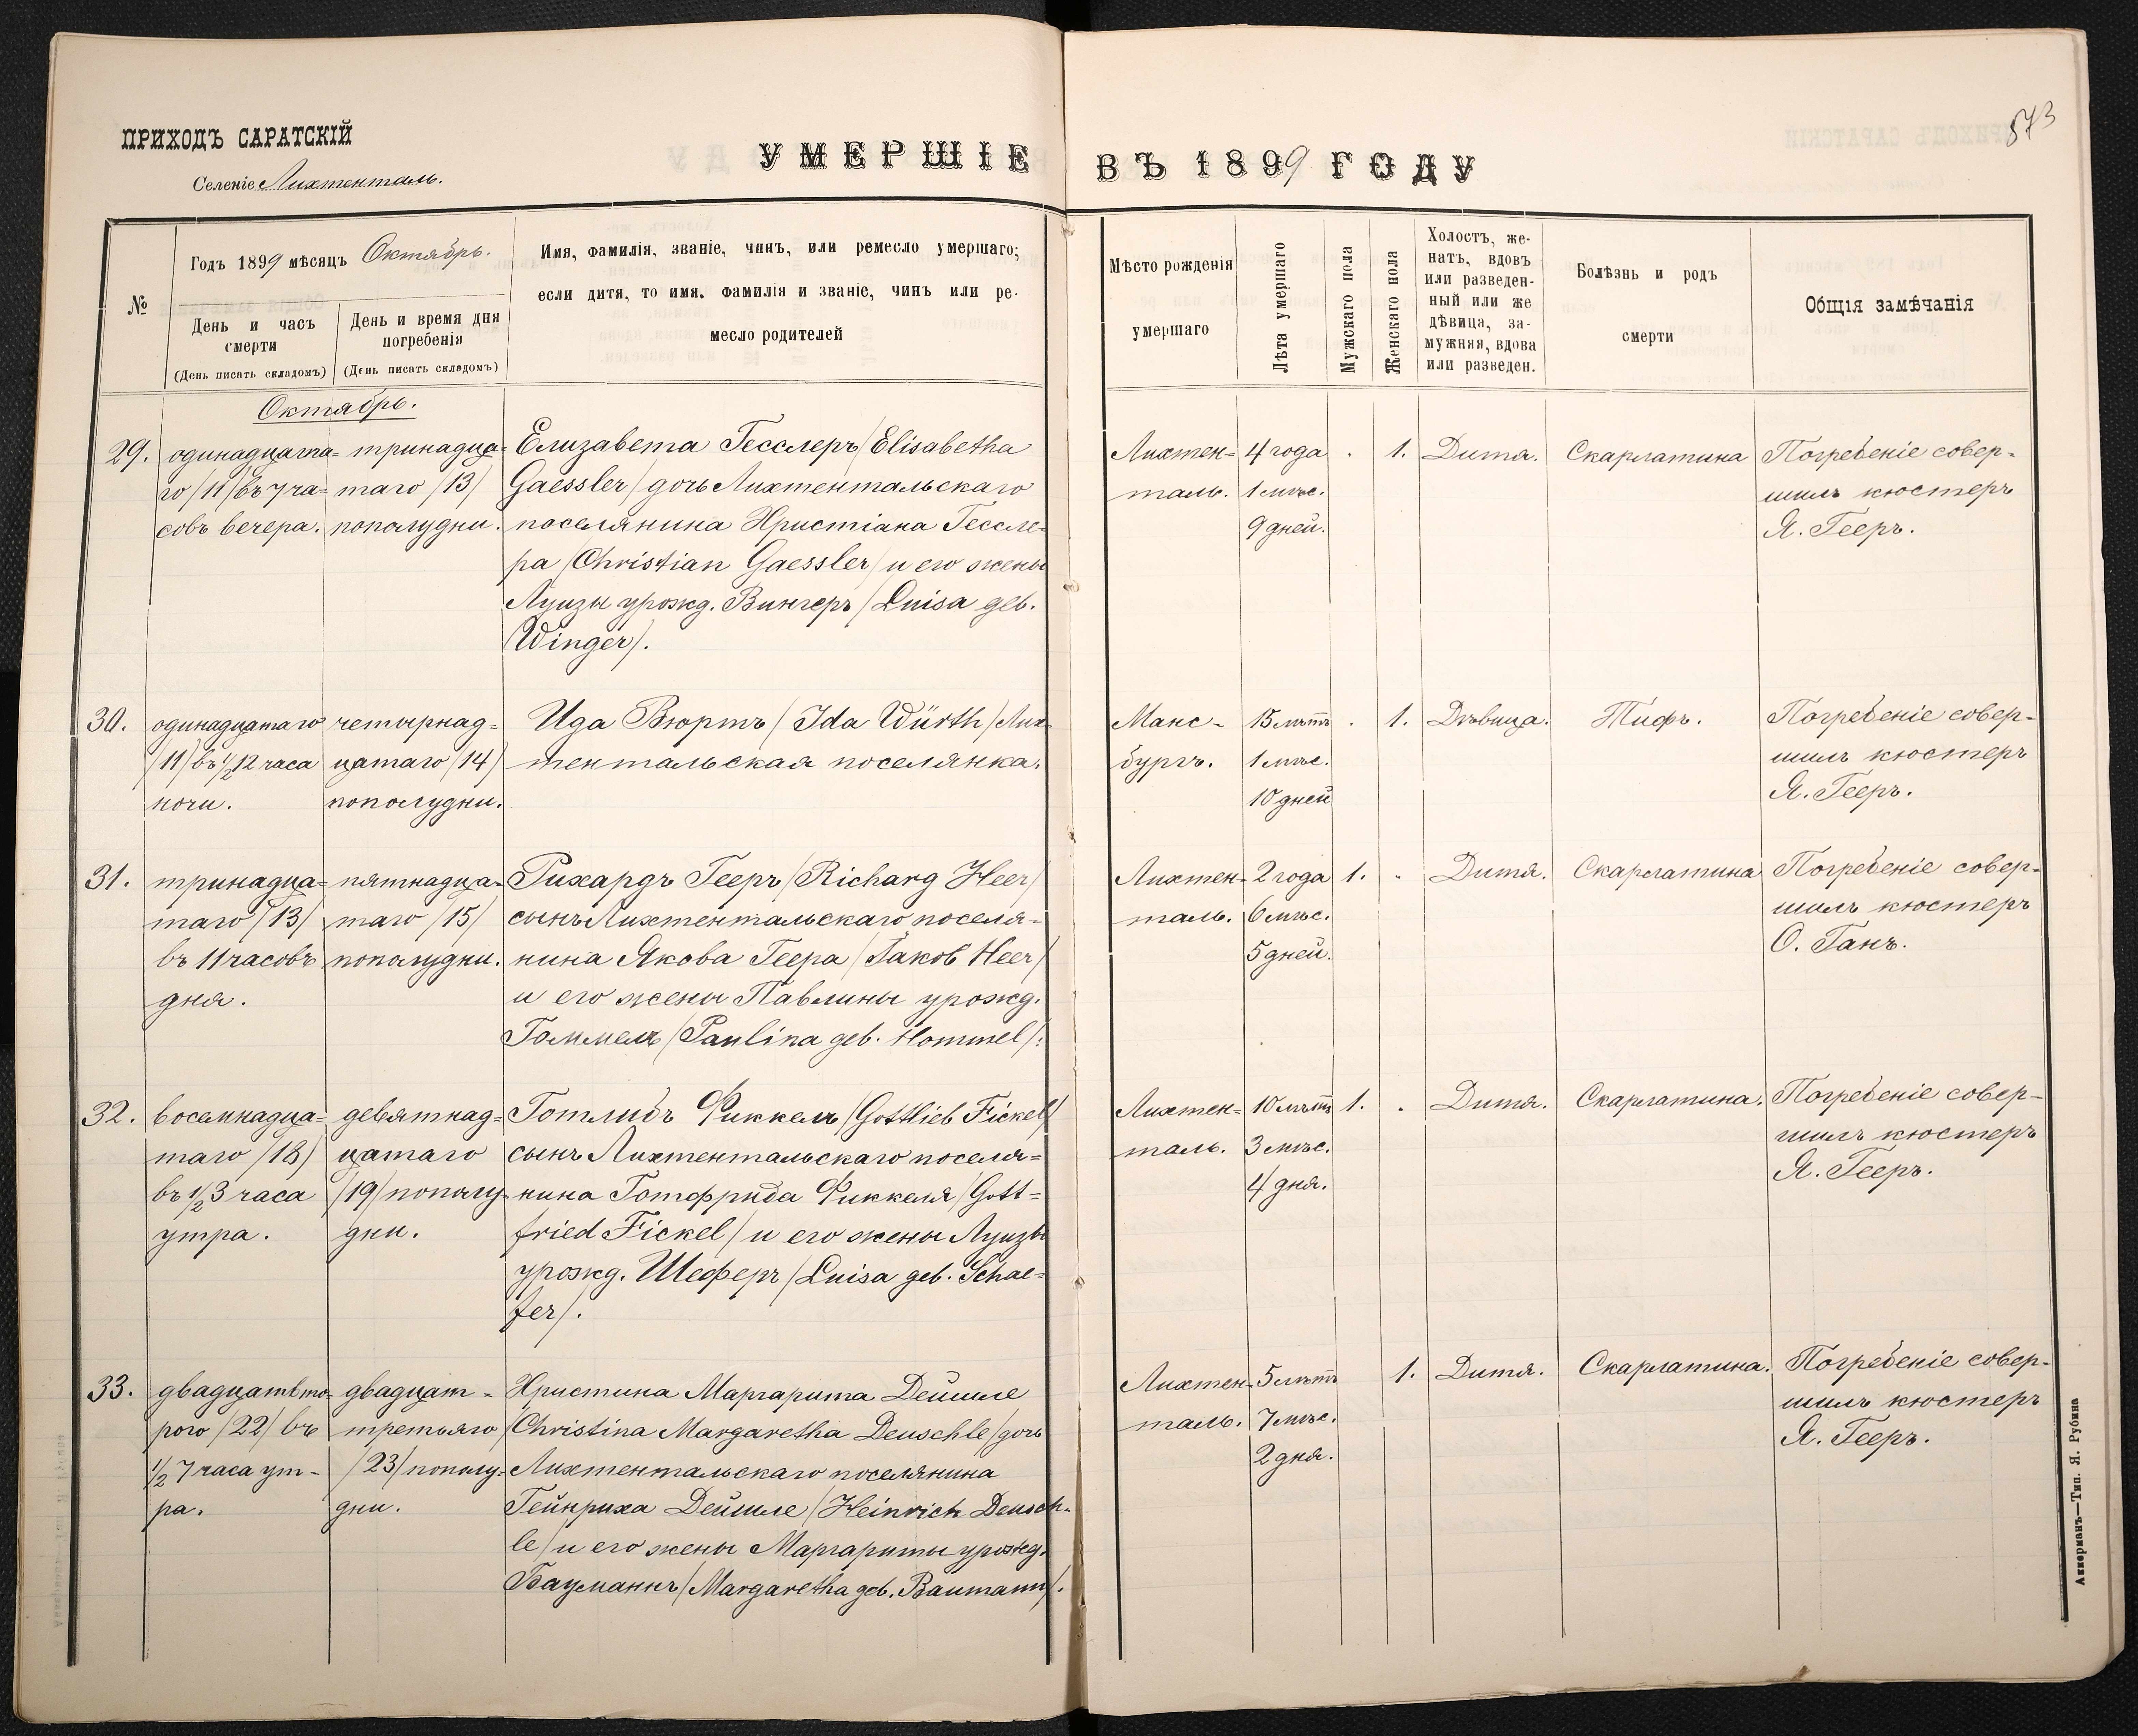 ПРИХОДЪ САРАТСКІЙ
Селеніе Лихтенталь.
УМЕРШІЕ ВЪ 1899 ГОДУ
573
№
Годъ 1899 мѣсяцъ Октябрь.
День и часъ
смерти
(День писать складомъ)
День и время дня
погребенія
(День писать складомъ)
Имя, фамилія, званіе, чинъ, или ремесло умершаго;
если дитя, то имя. фамилія и званіе, чинъ или ре-
месло родителей
Мѣсто рожденія
умершаго
Лѣта умершаго
Мужскаго пола
Женскаго пола
Холостъ, же-
натъ, вдовъ
или разведен-
ный или же
дѣвица, за-
мужняя, вдова
или разведен.
Болѣзнь и родъ
смерти
Общія замѣчанія
Октябрь.
29.
одинадцата-
го /11/ въ 7 ча-
совъ вечера.
тринадца-
таго /13/
пополудни.
Елизавета Гесслеръ /Elisabetha
Gaessler/ дочь Лихтентальскаго
поселянина Христіана Гессле-
ра /Christian Gaessler/ и его жены
Луизы урожд. Вингеръ /Luisa geb.
Winger/.
Лихтен-
таль.
4 года
1 мѣс.
9 дней.
.
1.
Дитя.
Скарлатина
Погребеніе совер-
шилъ кюстеръ
Я. Гееръ.
30.
одинадцатаго
/11/ въ ½12 часа
ночи.
четырнад-
цатаго /14/
пополудни.
Ида Вюртъ /Ida Würth/ Лих-
тентальская поселянка.
Манс-
бургъ.
15 лѣтъ
1 мѣс.
10 дней
.
1.
Дѣвица.
Тифъ.
Погребеніе совер-
шилъ кюстеръ
Я. Гееръ.
31.
тринадца-
таго /13/
въ 11 часовъ
дня.
пятнадца-
таго /15/
пополудни.
Рихардъ Гееръ /Richard Heer/
сынъ Лихтентальскаго поселя-
нина Якова Геера /Jakob Heer/
и его жены Павлины урожд.
Гоммель /Paulina geb. Hommel/.
Лихтен-
таль.
2 года
6 мѣс.
5 дней.
1.
.
Дитя.
Скарлатина
Погребеніе совер-
шилъ кюстеръ
О. Ганъ.
32.
восемнадца-
таго /18/
въ ½3 часа
утра.
девятнад-
цатаго
/19/ пополу-
дни.
Готлибъ Фиккель /Gottlieb Fickel/
сынъ Лихтентальскаго поселя-
нина Готфрида Фиккеля /Gott-
fried Fickel/ и его жены Луизы
урожд. Шеферъ /Luisa geb. Schae-
fer/.
Лихтен-
таль.
10 лѣтъ
3 мѣс.
4 дня.
1.
.
Дитя.
Скарлатина.
Погребеніе совер-
шилъ кюстеръ
Я. Гееръ.
33.
двадцать вто-
рого /22/ въ
½7 часа ут-
ра.
двадцат-
третьяго
/23/ пополу-
дни.
Христина Маргарита Дейшле
/Christina Margaretha Deuschle/ дочь
Лихтентальскаго поселянина
Гейнриха Дейшле /Heinrich Deusch-
le/ и его жены Маргариты урожд.
Бауманнъ /Margaretha geb. Baumann/.
Лихтен-
таль.
5 лѣтъ
7 мѣс.
2 дня.
1.
Дитя.
Скарлатина.
Погребеніе совер-
шилъ кюстеръ
Я. Гееръ.
Аккерманъ—Тип. Я. Рубина